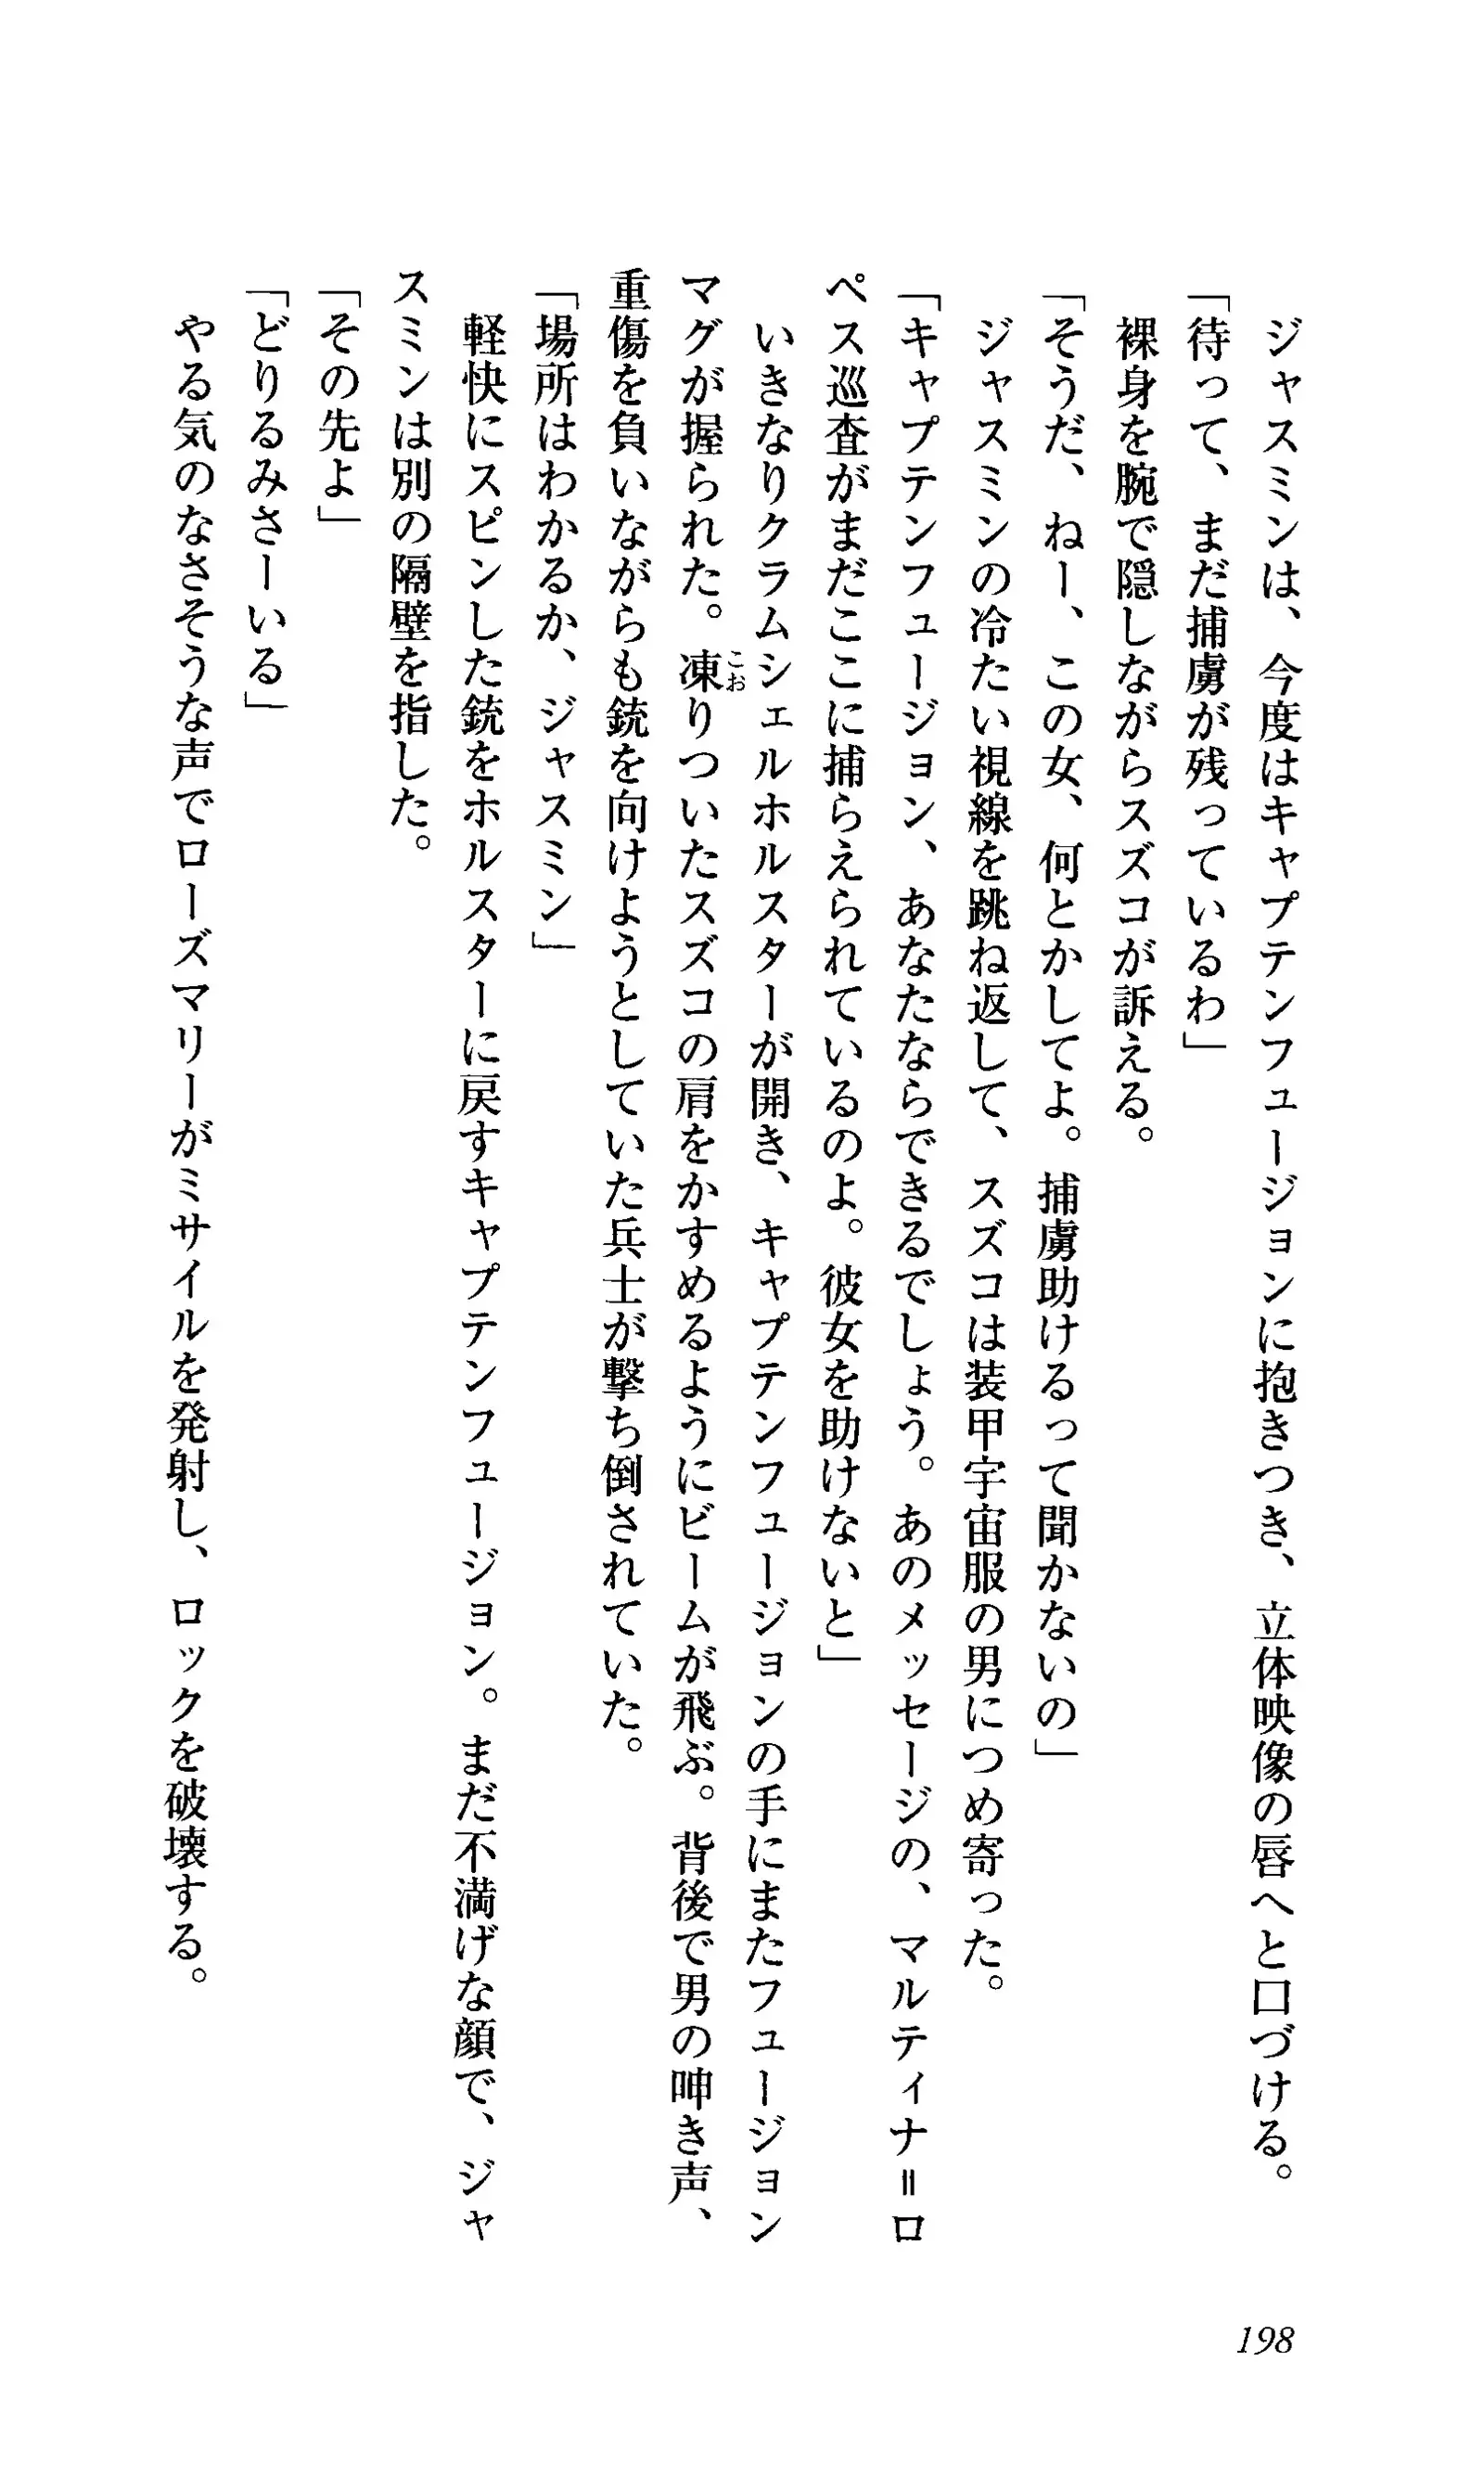 ジャスミンは、今度はキャプテンフュージョンに抱きつき、立体映像の唇へと口づける。
「待って、まだ捕虜が残っているわ」
　裸身を腕で隠しながらスズコが訴える。
「そうだ、ねー、この女、何とかしてよ。捕虜助けるって聞かないの」
　ジャスミンの冷たい視線を跳ね返して、スズコは装甲宇宙服の男につめ寄った。
「キャプテンフュージョン、あなたならできるでしょう。あのメッセージの、マルティナ＝ロ
ペス巡査がまだここに捕らえられているのよ。彼女を助けないと」
　いきなりクラムシェルホルスターが開き、キャプテンフュージョンの手にまたフュージョン
マグが握られた。凍りついたスズコの肩をかすめるようにビームが飛ぶ。背後で男の呻き声、
こお
重傷を負いながらも銃を向けようとしていた兵士が撃ち倒されていた。
「場所はわかるか、ジャスミン」
　軽快にスピンした銃をホルスターに戻すキャプテンフュージョン。まだ不満げな顔で、ジャ
スミンは別の隔壁を指した。
「その先よ」
「どりるみさーいる」
　やる気のなさそうな声でローズマリーがミサイルを発射し、ロックを破壊する。
198